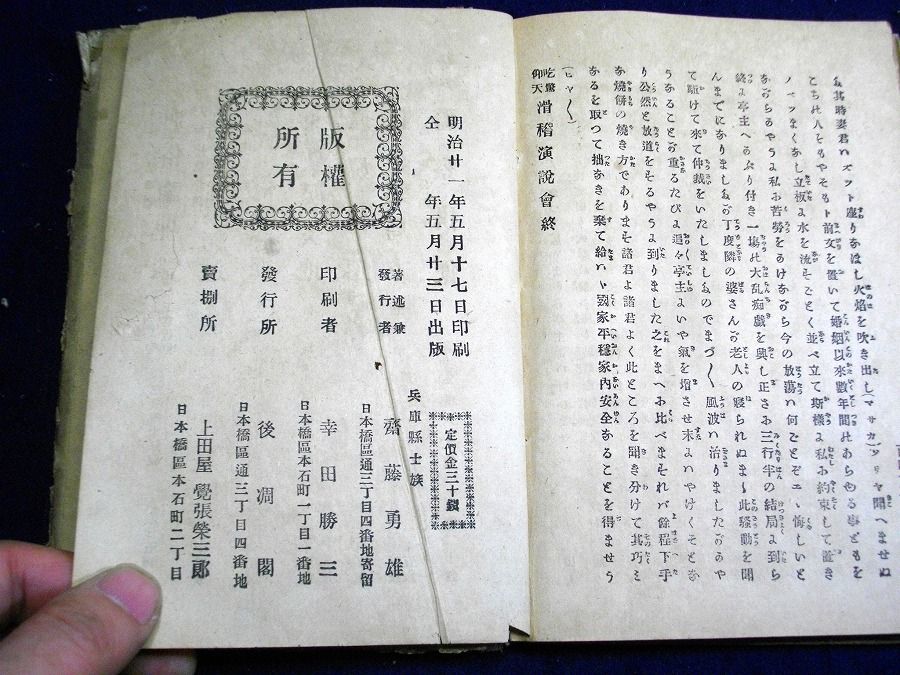 ゐ其時妻君ハズツト座りなほし火焔を吹き出し（マサカソリャ聞へませぬ
こちの人そもやそも卜前女を置いて婚姻以來數年間ありとあらゆる事どもを
立板よ水を流すごとく並べ立て斯様よ私お約束して置き
あがらるやうよ私お苦勞をるけあがら今の放蕩ハ何ごとぞエヽ悔しいと
終よ亭主へゑぶり付き一塲の大乱痴戯を興し正さお三行半の結局よ到ら
んまでになりましたが丁度隣の婆さんが老人の寢られぬまゝ此騒動を聞
て駈けて來て仲裁をいたしましたのでまづ〱風波ハ治りましたがそや
うなることの重るたびよ追々亭主よいや氣を増させ末よハやけくそとな
り公然と放道をそるやうよ到りました之をまへお比べませれバ餘程下手
な燒餅の燒き方でありまそ諸君よ諸君よく此ところを聞き分けて其巧み
なるを取つて拙なきを棄て給ハヾ國家平穩家内安全なることを得ませう
（ヒヤ〱）
吃驚仰天 滑稽演説會終
明治廿一年五月十七日印刷
仝　年五月廿三日出版
版權所有
定價金三十錢
兵庫縣士族
著述兼發行者　齋藤勇雄
日本橋區通三丁目四番地寄留
印刷者　幸田勝三
日本橋區本石町一丁目一番地
發行所　後凋閣
日本橋區通三丁目四番地
賣捌所　上田屋　覺張榮三郎
日本橋區本石町二丁目